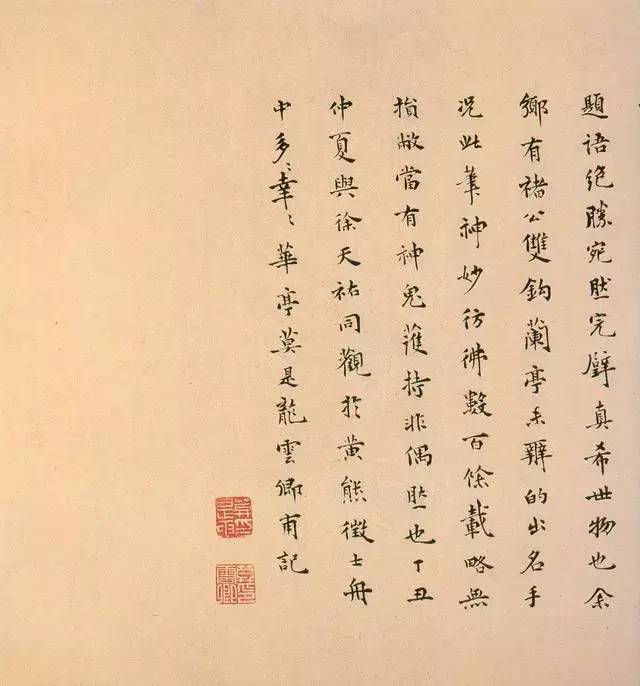 題語絶勝宛然完璧真希世物也余
鄉有褚公雙鈎蘭亭未辯的出名手
況此筆神妙彷彿數百餘載略無
損敝當有神鬼護持非偶然也丁丑
仲夏與徐天祐同觀於黃熊徵士舟
中多〻幸〻華亭莫是龍雲卿甫記